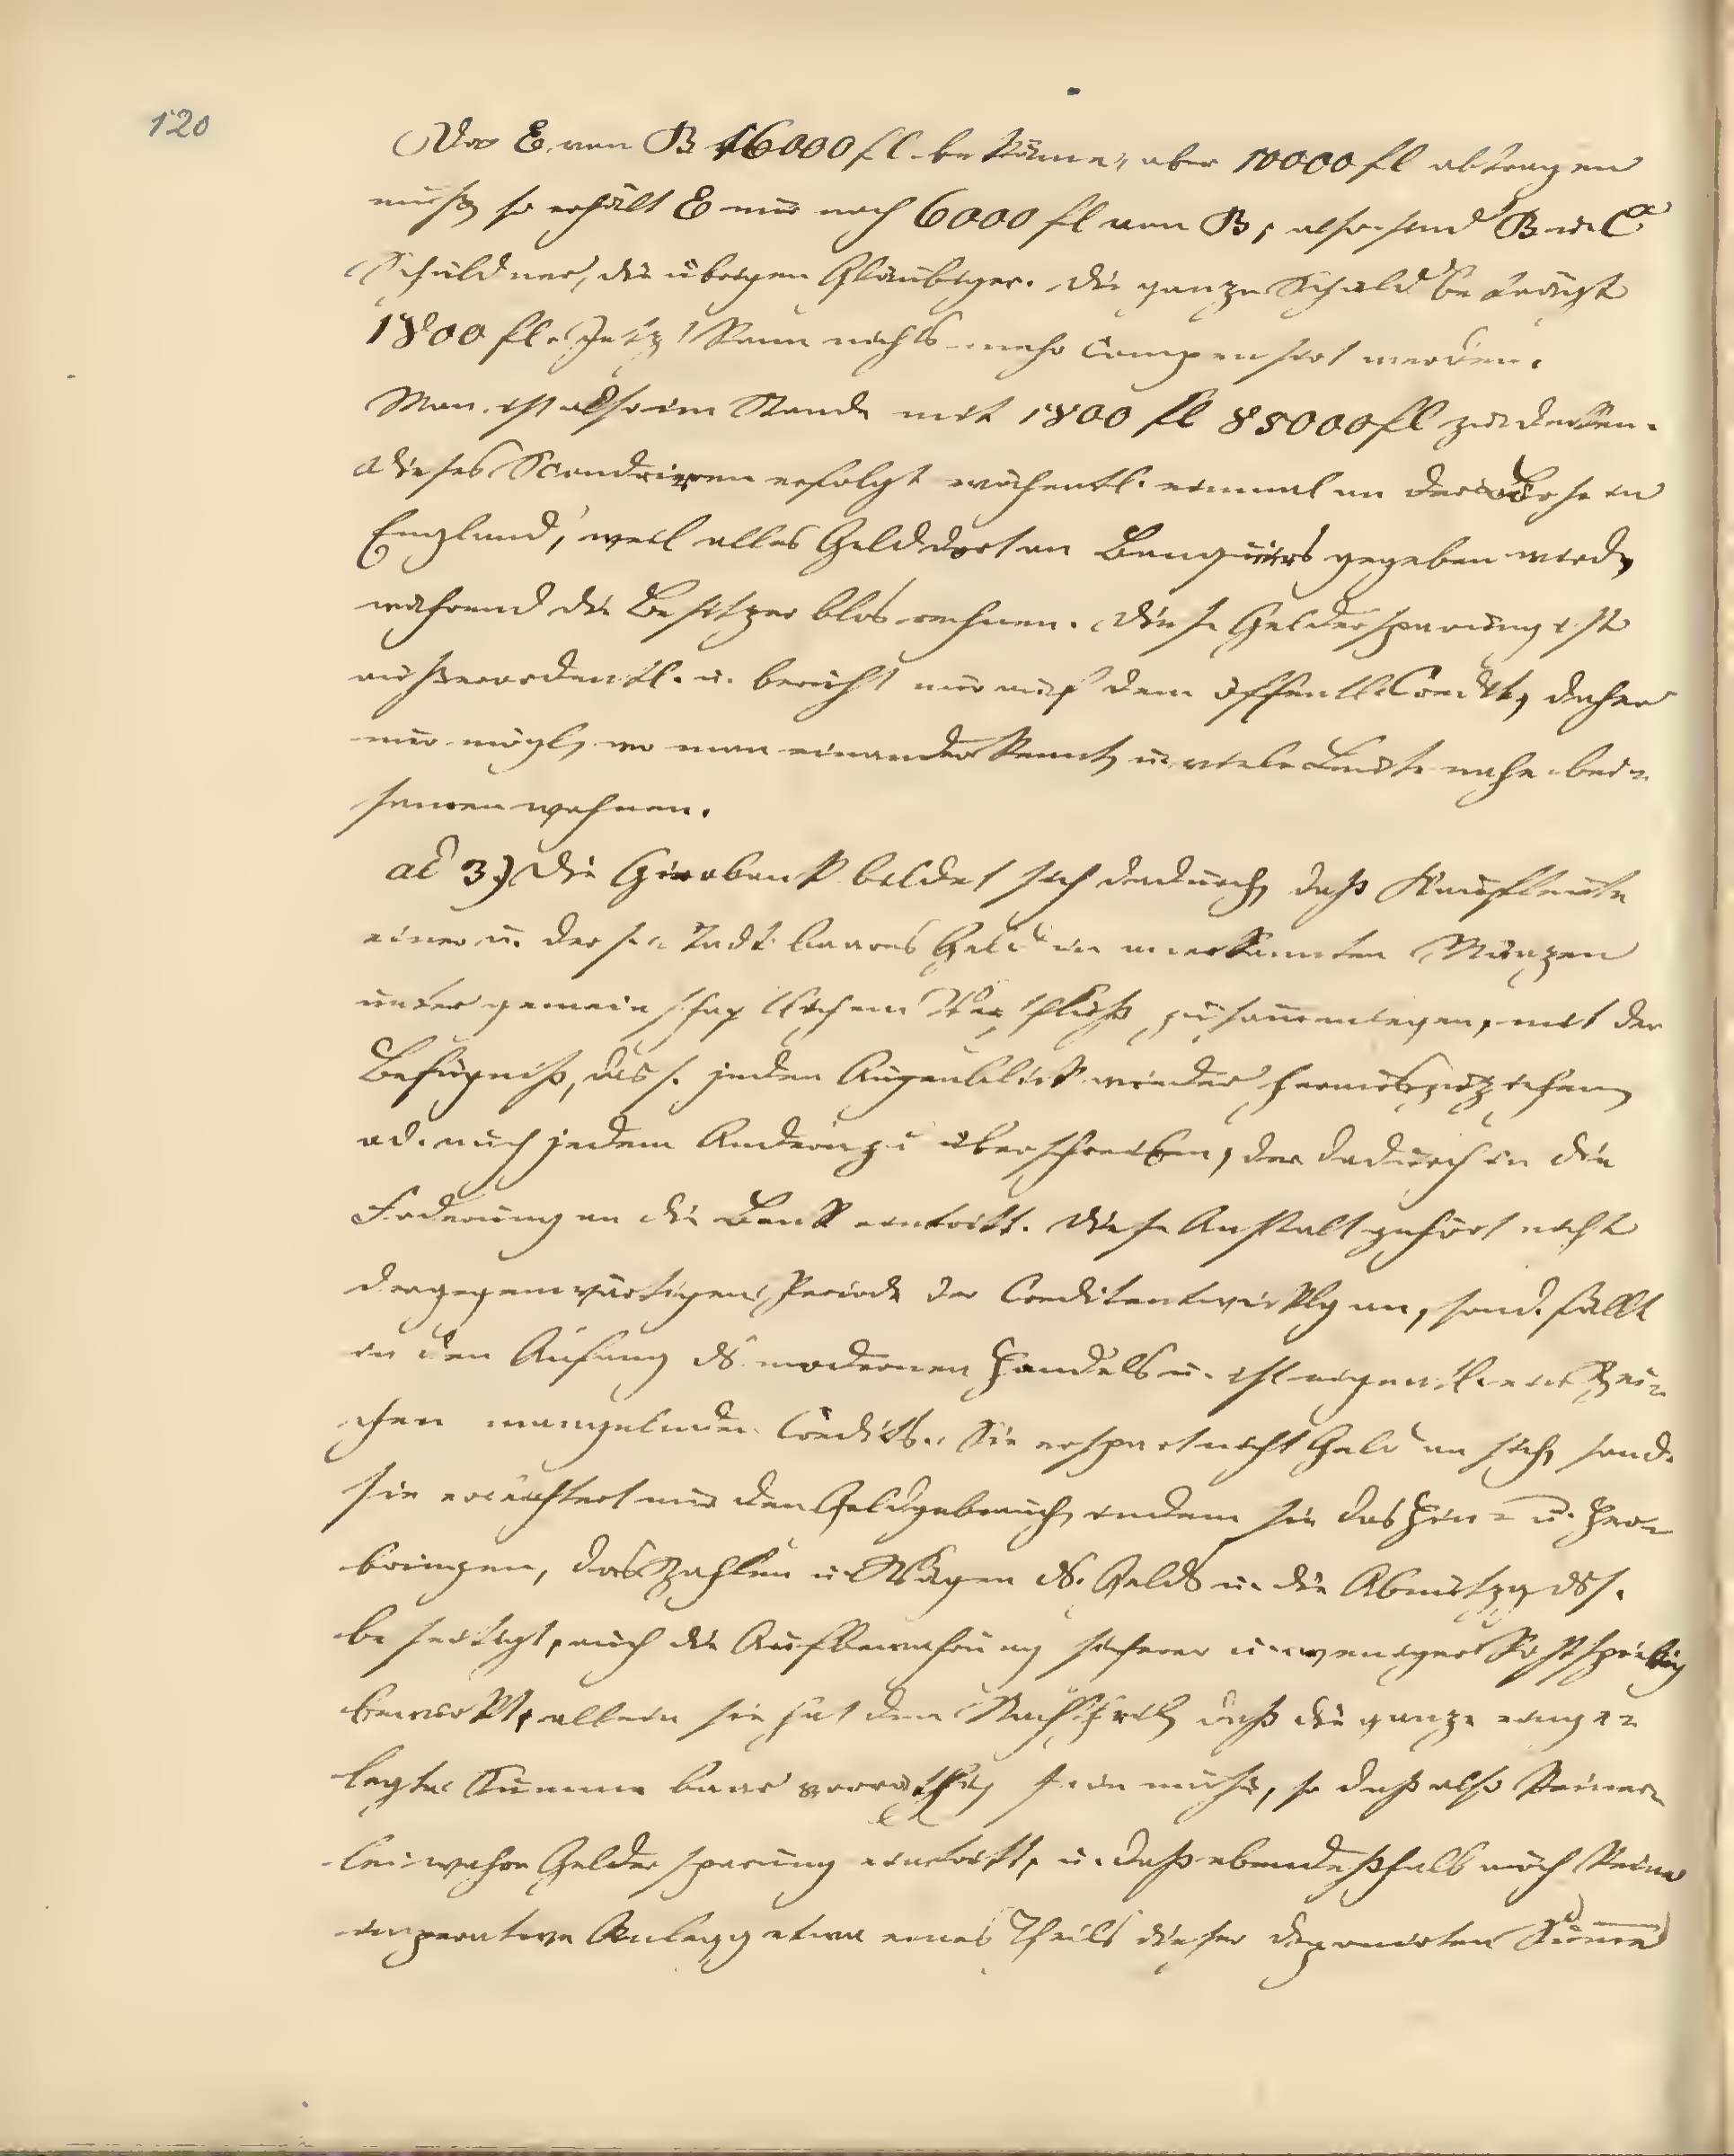 120
Da E. von B 16000 fl. bekäme, aber 10000 fl abtragen
muß, so erhält E nur noch 6000 fl von B, also sind B u. C
Schuldner, die übrigen Gläubiger. Die ganze Schuld beträgt
1800 fl. Jetzt kann nichts mehr compensirt werden.
Man ist also im Stande mit 1800 fl 85000 fl zu decken.
Dieses Scondriren erfolgt wöchentl. einmal an der Börse in
England, weil alles Geld dort an Banquiers gegeben wird,
während die Besitzer blos rechnen. Diese Geldersparung ist
außerordentl. u. beruht nur auf dem öffentl. Credit, daher
nur mögl., wo man einander kennt, u. viele Leute nahe bei-
samen wohnen.
ad 3.) Die Girobank bildet sich dadurch, daß Kaufleute
einer u. ders. Stadt baares Geld in anerkannten Münzen
unter gemeinschaftlichem Verschluß zusammenlegen, mit der
Befugniß, dass. jeden Augenblick wieder herauszuziehen,
od. auch jedem Andern zu überschreiben, der dadurch in die
Foderung an die Bank eintritt. Diese Anstalt gehört nicht
der gegenwärtigen Periode der Creditentwicklg an, sond. fällt
in den Anfang ds. modernen Handels u. ist eigentl. ein Zei-
chen mangelnden Credits. Sie erspart nicht Geld an sich, sond.
sie erleichtert nur den Geldgebrauch, indem sie das Hin- u. Her-
bringen, das Zahlen u. Wägen ds. Gelds u. die Abnutzg dss.
beseitigt, auch die Aufbewahrung sicherer u. weniger kostspielig
bewirkt, allein sie hat den Nachtheil, daß die ganze einge-
legte Summe baar vorräthig sein muß, so daß also keiner-
lei wahre Geldersparung eintritt, u. daß ebendeßhalb auch keine
Anlegg etwa eines Theils dieser deponirten Summe